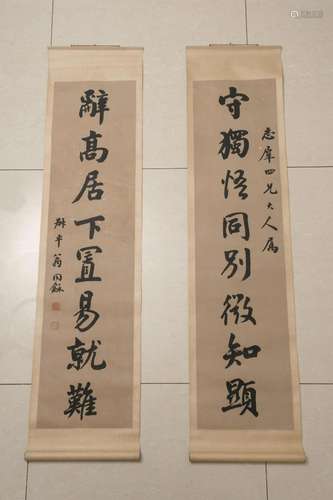 守獨悟同別微知顯
志犀四兄大人屬
辭高居下置易就難
尗平翁同龢